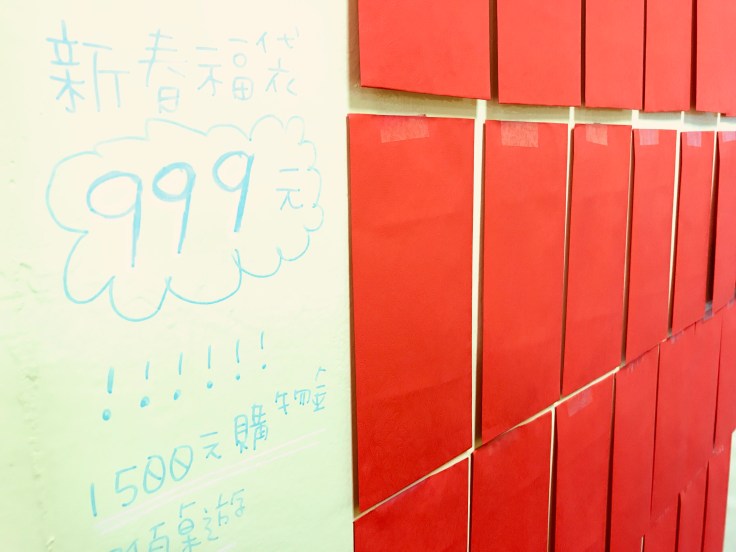 新春福袋
999元
!!!!!!
1500元購物金
桌遊